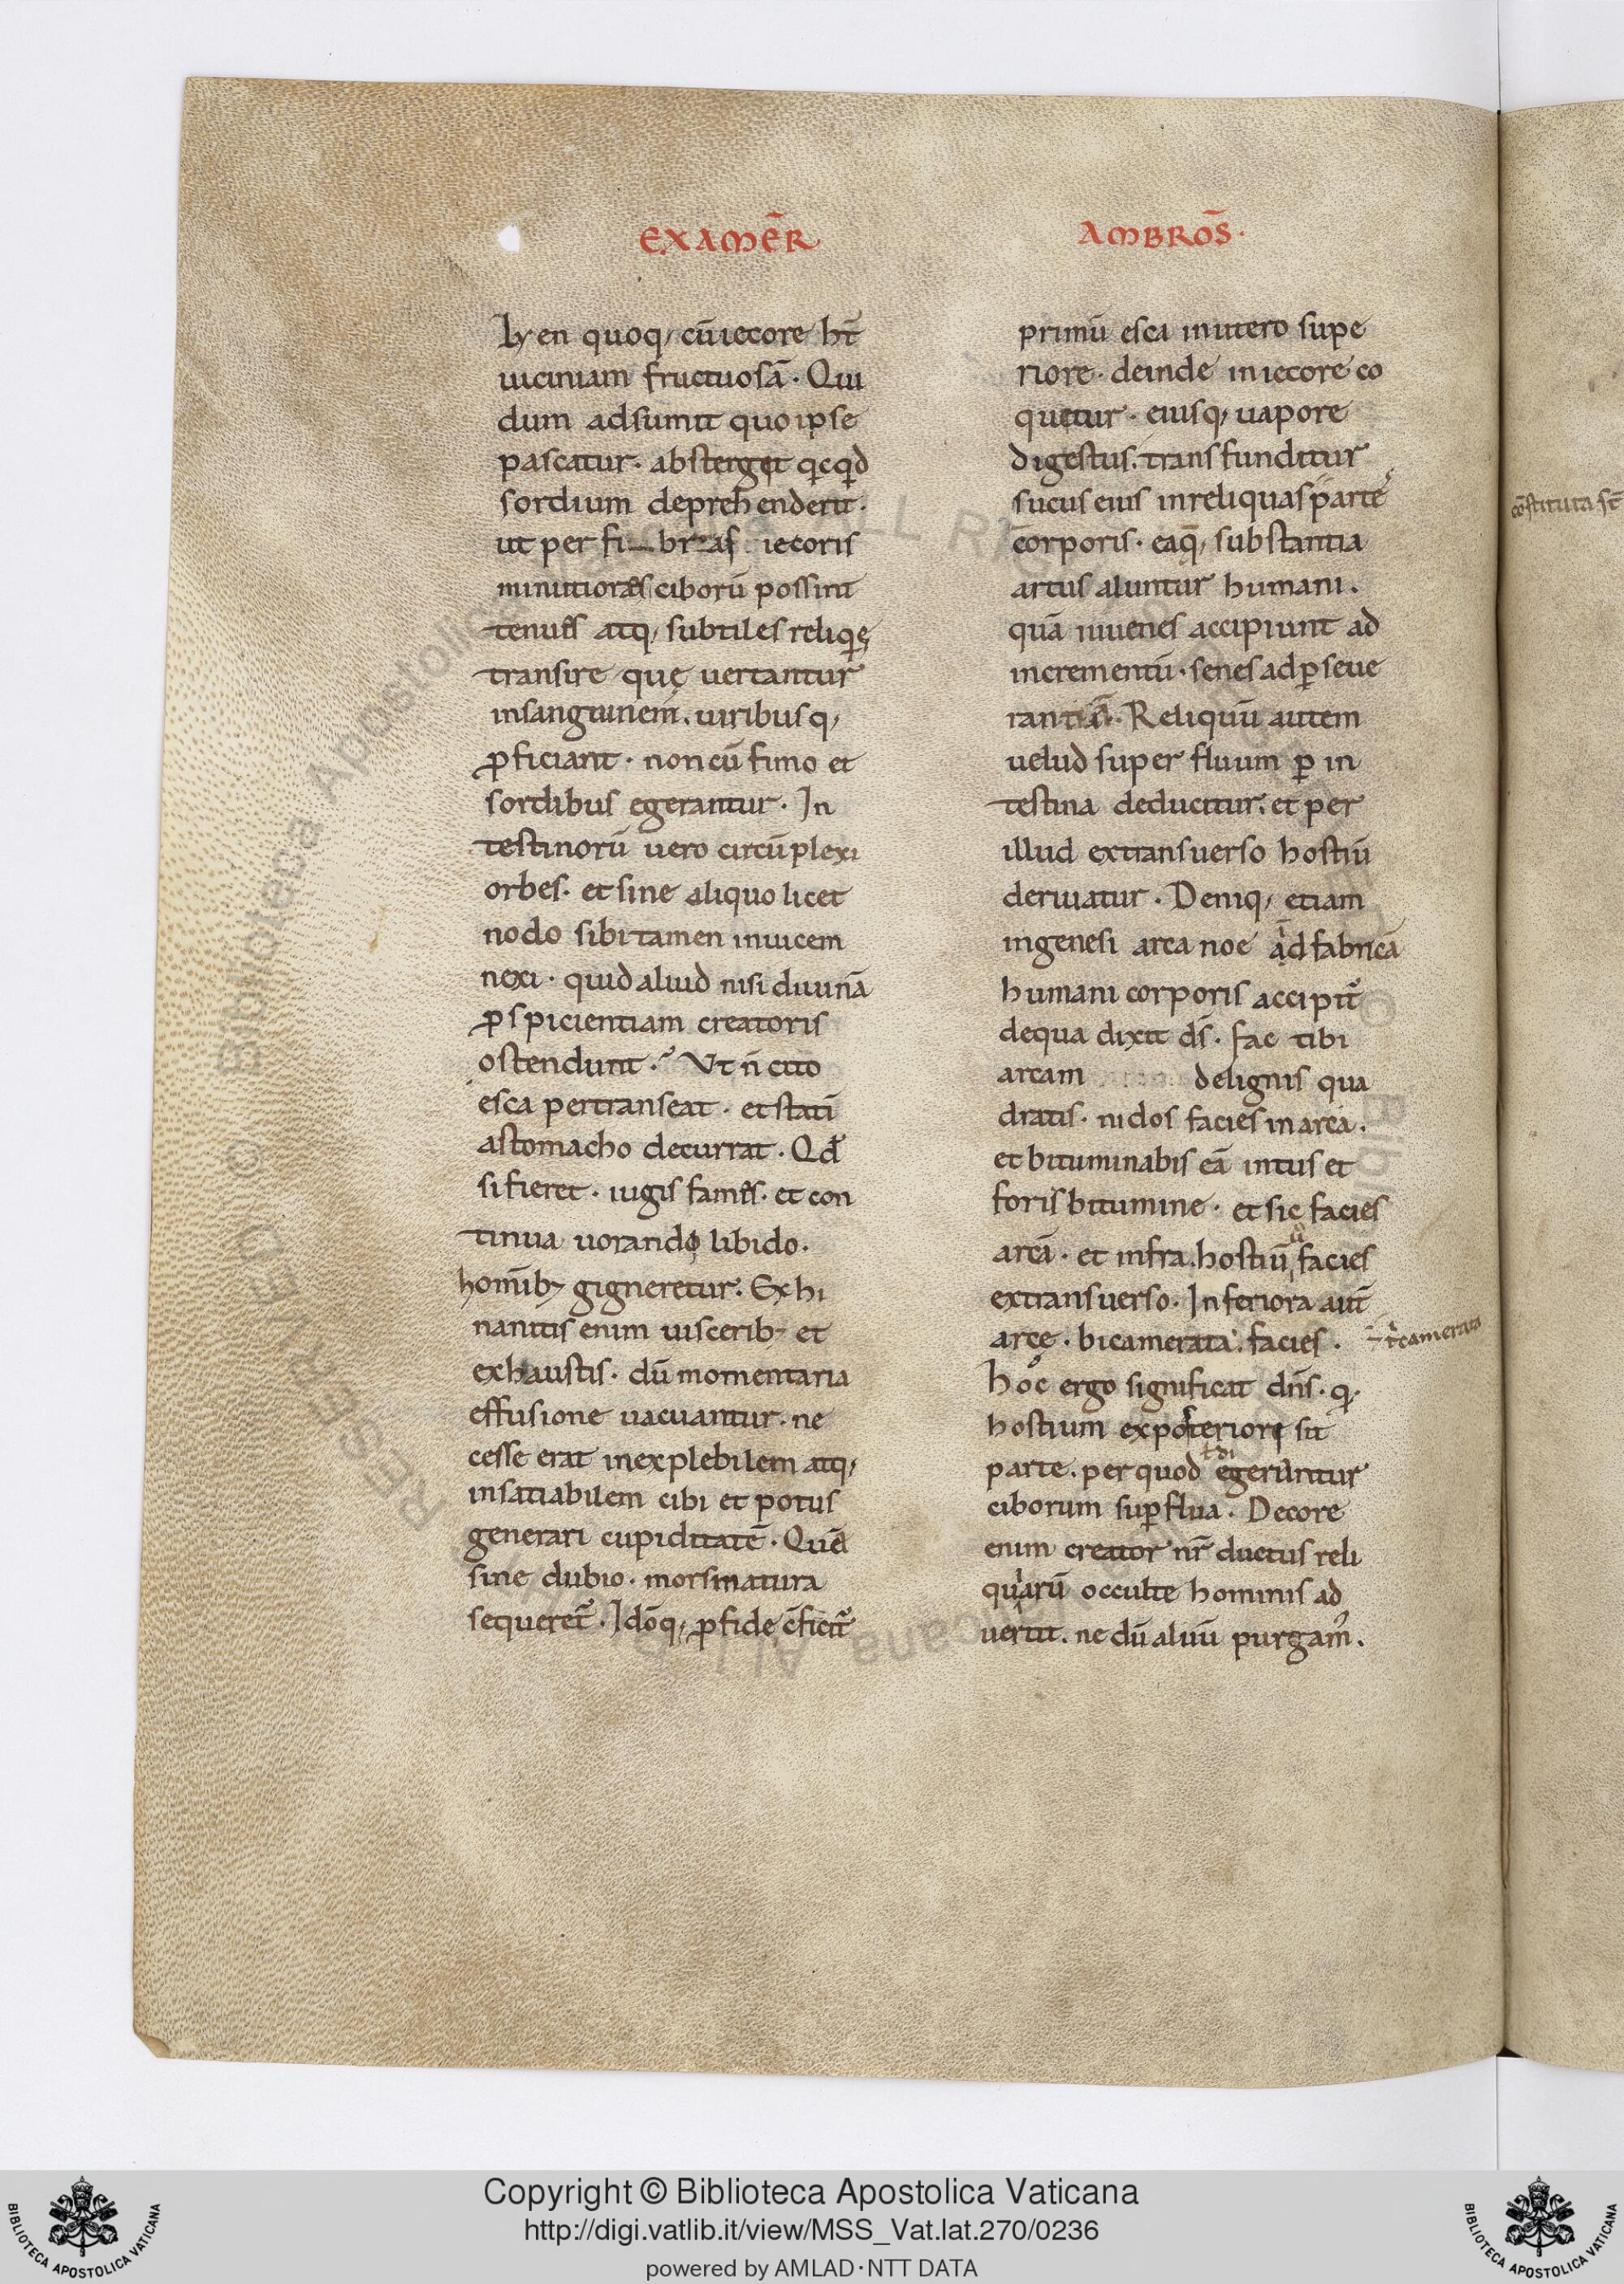 EXAMER̄
AMBROS̄·
Lyen quoq; cū iecore ht̄
uiciniam fructuosā· Qui
dum adsumit quo ipse
pascatur· absterget qcqd
sordium deprehenderit·
ut per fi bras iecoris
minutiores ciborū possint
tenues atq; subtiles reliqę
transire quę uertantur
insanguinem· uiribusq;
ꝓficiant· non cū fimo et
sordibus egerantur· In
testinorū uero circūplexi
orbes· et sine aliquo licet
nodo sibi tamen inuicem
nexi· quid aliud nisi diuinā
ꝓspicientiam creatoris
ostendunt· Vt n̄ cito
esca pertranseat· et statī
astomacho decurrat· Qd̄
si fieret· iugis fames· et con
tinua uorandi libido·
homībꝰ gigneretur· Exhi
nanitis enim uiscerib; et
exhaustis· dū momentaria
effusione uacuantur· ne
cesse erat inexplebilem atq;
insatiabilem cibi et potus
generari cupiditatē· Quā
sine dubio· mors matura
sequeret̄· Idōq; ꝓfide c̄ficit̄
primū esca in utero supe
riore· deinde in iecore co
quetur· eiusq; uapore
digestus· transfunditur
sucus eius inreliquas parte
corporis· eaq; substantia
artus aluntur humani·
quā iuuenes accipiunt ad
incrementū· senes ad ꝑseue
rantiā· Reliquū autem
uelud superfluum ꝑ in
testina deducitur· et per
illud extransuerso hostiū
deriuatur· Deniq; etiam
ingenesi arca noe ad fabricā
humani corporis accipit̄
dequa dixit ds̄· fac tibi
arcam delignis qua
dratis· nidos facies in arca·
et bituminabis eā intus et
foris bitumine· et sic facies
arcā· et infra hostiū facies
extransuerso· Inferiora aut̄
arcę· bicamerata facies·
tricamerata
hoc ergo significat dn̄s· q·
hostium exposteriore sit
parte· per quod egeruntur
ciborum suꝑflua· Decore
enim creator nr̄ ductus reli
quiarū occulte hominis ad
uertit· ne dū aluū purgam·
cōstituta st̄
Copyright © Biblioteca Apostolica Vaticana
http://digi.vatlib.it/view/MSS_Vat.lat.270/0236
powered by AMLAD·NTT DATA
BIBLIOTECA APOSTOLICA VATICANA
BIBLIOTECA APOSTOLICA VATICANA